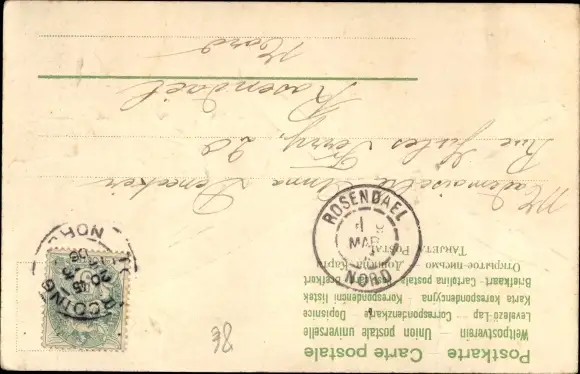 Postkarte — Carte postale
Weltpostverein — Union postale universelle
Levelező-Lap — Correspondenzkarte — Dopisnice
Karta korespondencyjna — Korespondenční listek
Briefkaart — Cartolina postale — Brefkort
Открытое письмо — Дописна Карта
TARJETA POSTAL
ROSENDAEL
1
MAR
NORD
NORD
38
Mademoiselle Anna Deneecker
Rue Jules Ferry, 20
Rosendael
Nord